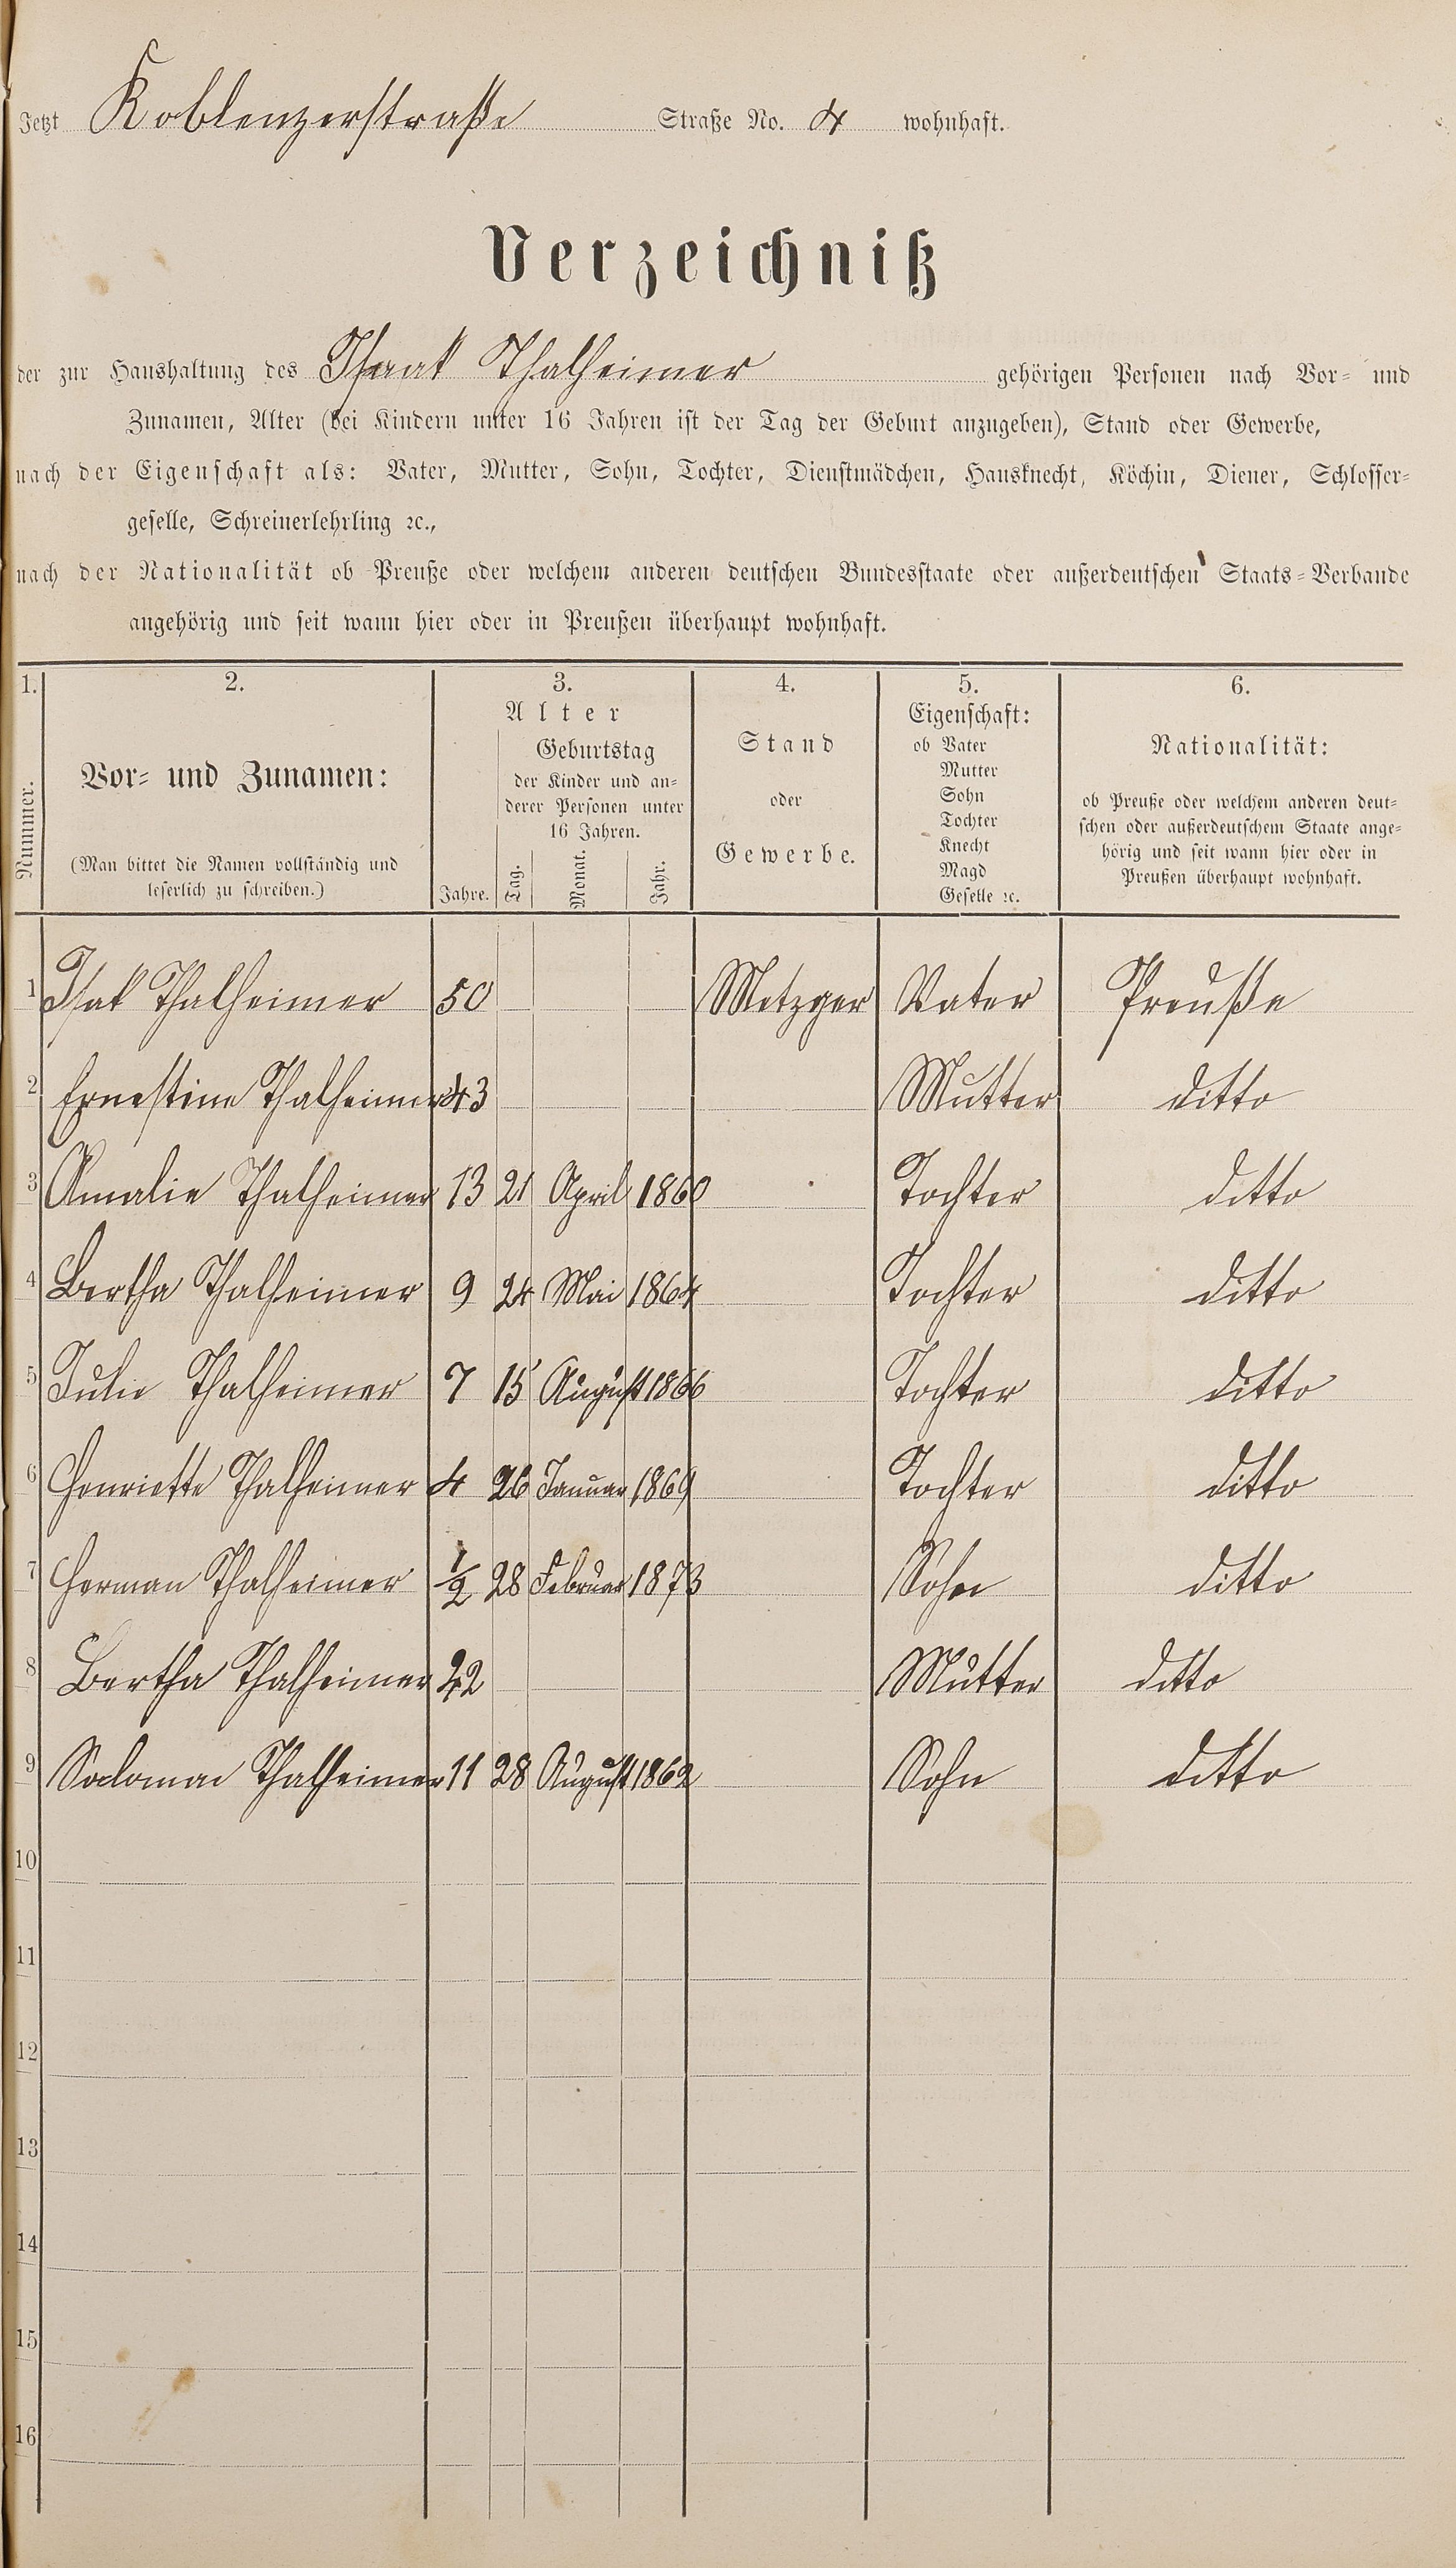 Jetzt Koblenzerstraße Straße No. 4 wohnhaft.
Verzeichniß
der zur Haushaltung des Isaak Thalheimer gehörigen Personen nach Vor- und
Zunamen, Alter (bei Kindern unter 16 Jahren ist der Tag der Geburt anzugeben), Stand oder Gewerbe,
nach der Eigenschaft als: Vater, Mutter, Sohn, Tochter, Dienstmädchen, Hausknecht, Köchin, Diener, Schlosser-
geselle, Schreinerlehrling ꝛc.,
nach der Nationalität ob Preuße oder welchem anderen deutschen Bundesstaate oder außerdeutschen Staats-Verbande
angehörig und seit wann hier oder in Preußen überhaupt wohnhaft.
1. 2. 3. 4. 5. 6.
Nummer.
Vor- und Zunamen:
(Man bittet die Namen vollständig und
leserlich zu schreiben.)
Alter
Jahre.
Geburtstag
der Kinder und an-
derer Personen unter
16 Jahren.
Tag. Monat. Jahr.
Stand
oder
Gewerbe.
Eigenschaft:
ob Vater
Mutter
Sohn
Tochter
Knecht
Magd
Geselle ꝛc.
Nationalität:
ob Preuße oder welchem anderen deut-
schen oder außerdeutschem Staate ange-
hörig und seit wann hier oder in
Preußen überhaupt wohnhaft.
1 Isak Thalheimer 50 Metzger Vater Preuße
2 Ernestine Thalheimer 43 Mutter ditto
3 Amalie Thalheimer 13 21 April 1860 Tochter ditto
4 Bertha Thalheimer 9 24 Mai 1864 Tochter ditto
5 Julie Thalheimer 7 15 August 1866 Tochter ditto
6 Henriette Thalheimer 4 26 Januar 1869 Tochter ditto
7 Herman Thalheimer 1/2 28 Februar 1873 Sohn ditto
8 Bertha Thalheimer 42 Mutter ditto
9 Salomon Thalheimer 11 28 August 1862 Sohn ditto
10
11
12
13
14
15
16